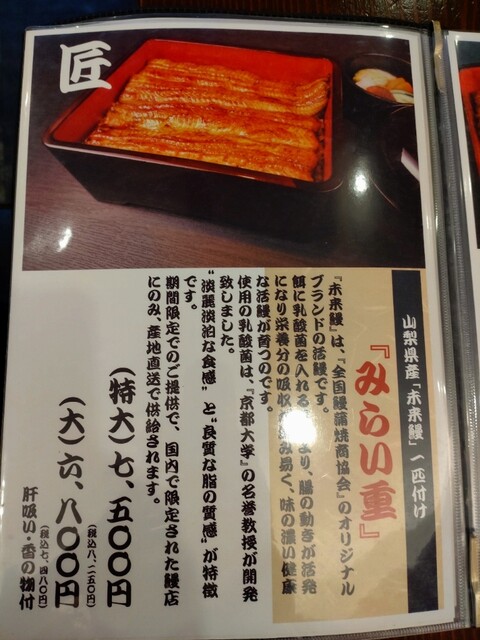 匠
山梨県産「未来鰻」一匹付け
『みらい重』
『未来鰻』は、『全国鰻蒲焼商協会』のオリジナル
ブランドの活鰻です。
餌に乳酸菌を入れる より、腸の動きが活発
になり栄養分の吸収 み易く、味の濃い健康
な活鰻が育つのです。
使用の乳酸菌は『京都大学』の名誉教授が開発
致しました。
“淡麗淡泊な食感”と“良質な脂の質感”が特徴
です。
期間限定でのご提供で、国内で限定された鰻店
にのみ、産地直送で供給されます。
(特大)七、五〇〇円
(税込八、二五〇円)
(大)六、八〇〇円
(税込七、四八〇円)
肝吸い・香の物付